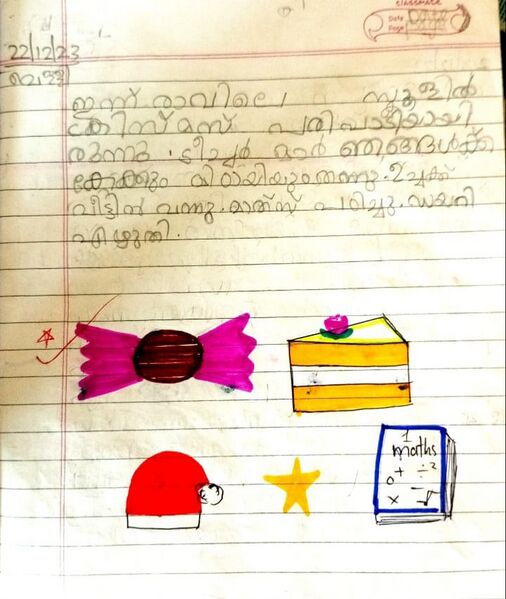 classmate
Date
Page
22/12/23
വെള്ളി
ഇന്ന് രാവിലെ സ്കൂളിൽ
ക്രിസ്മസ് പരിപാടിയായി
രുന്നു. ടീച്ചർ മാർ ഞങ്ങൾക്ക്
കേക്കും മിഠായിയും തന്നു. ഉച്ചക്ക്
വീട്ടിൽ വന്നു. മാത്സ് പഠിച്ചു. ഡയറി
എഴുതി.
1
maths
+ ÷ 2
0 −
× √